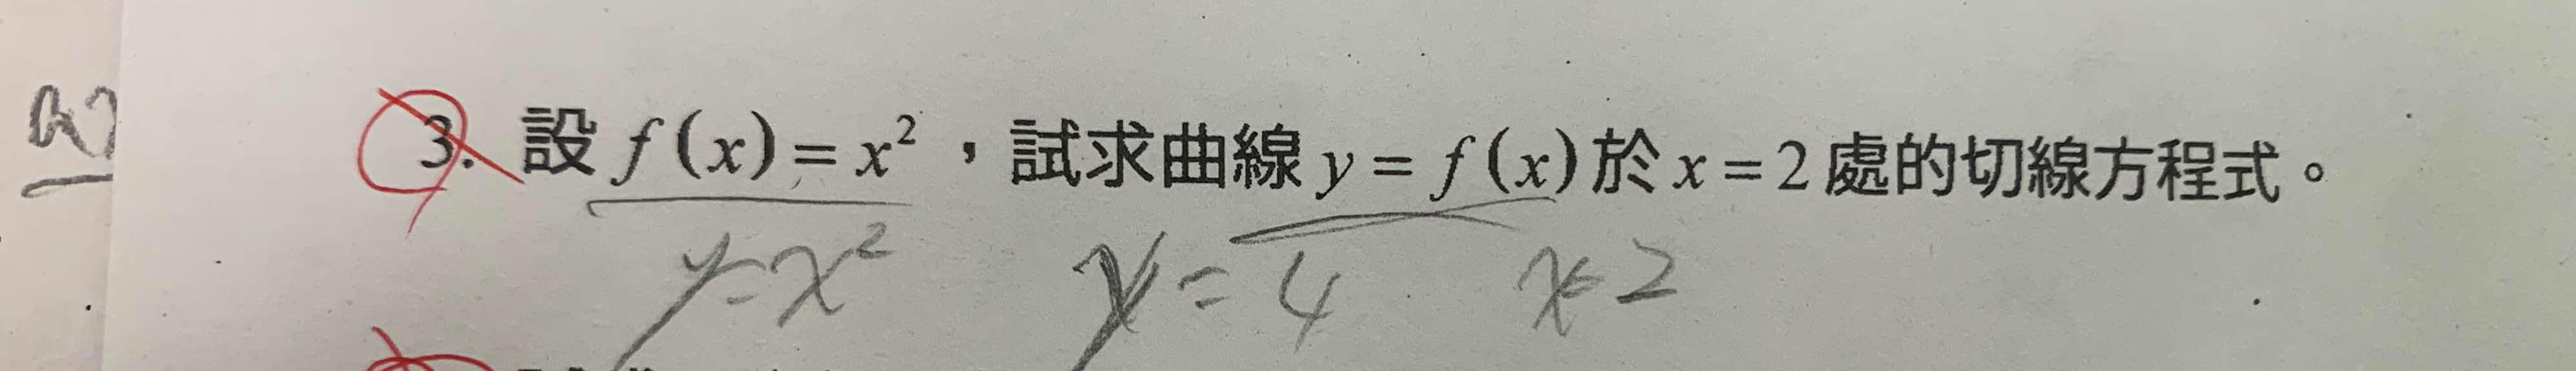 3. 設 f(x) = x²，試求曲線 y = f(x) 於 x = 2 處的切線方程式。
y=x² y=4 x=2